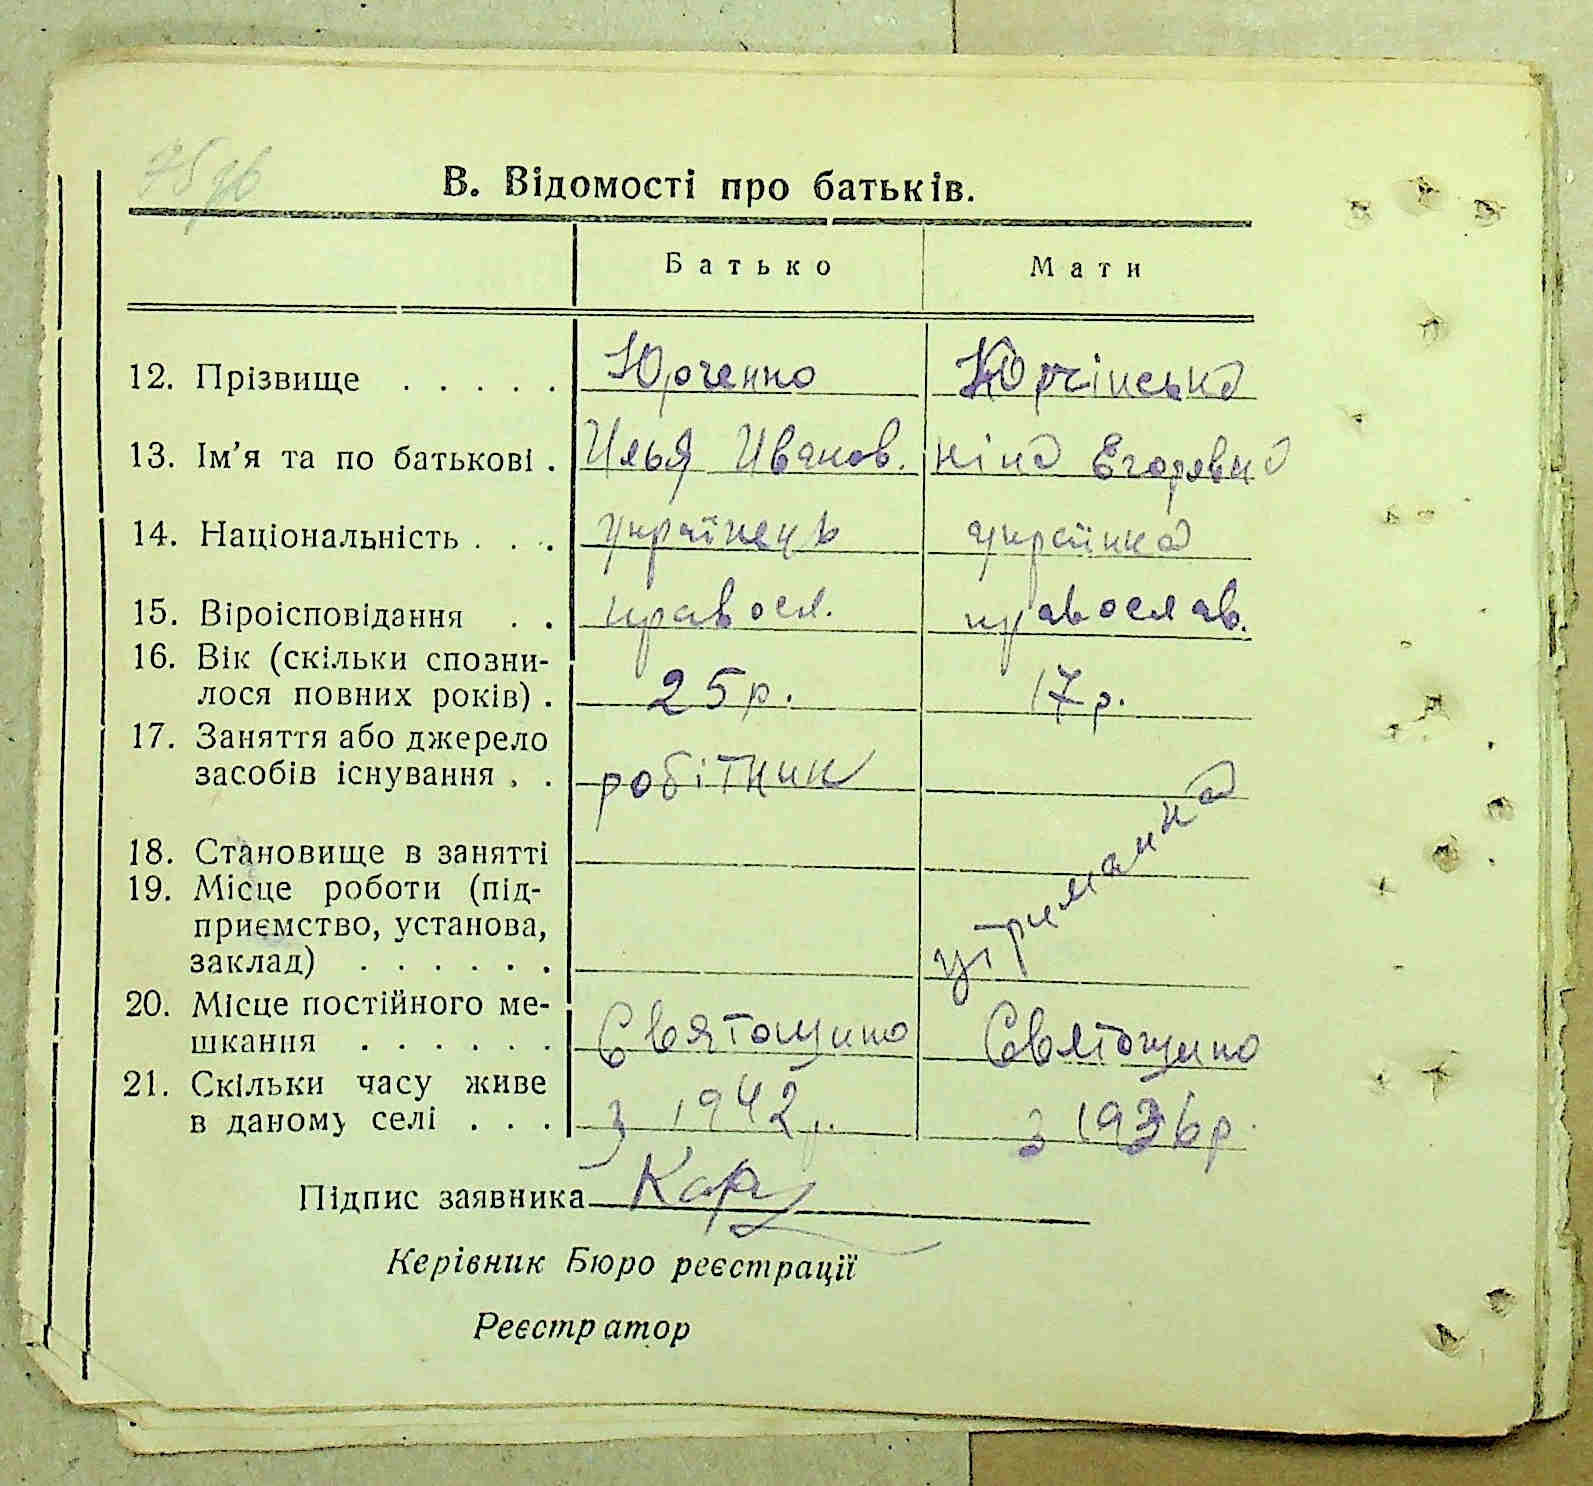 75 зв
В. Відомості про батьків.
Батько Мати
12. Прізвище . . . . . Юрченко Юрчінська
13. Ім’я та по батькові . Илья Иванов. Ніна Егоровна
14. Національність . . . українець українка
15. Віроісповідання . . правосл. православ.
16. Вік (скільки сповни-
лося повних років) . 25 р. 17 р.
17. Заняття або джерело
засобів існування . . робітник утриманка
18. Становище в занятті
19. Місце роботи (під-
приємство, установа,
заклад) . . . . . .
20. Місце постійного ме-
шкання . . . . . . Святошино Святошино
21. Скільки часу живе
в даному селі . . . з 1942 р. з 1936 р.
Підпис заявника
Керівник Бюро реєстрації
Реєстратор